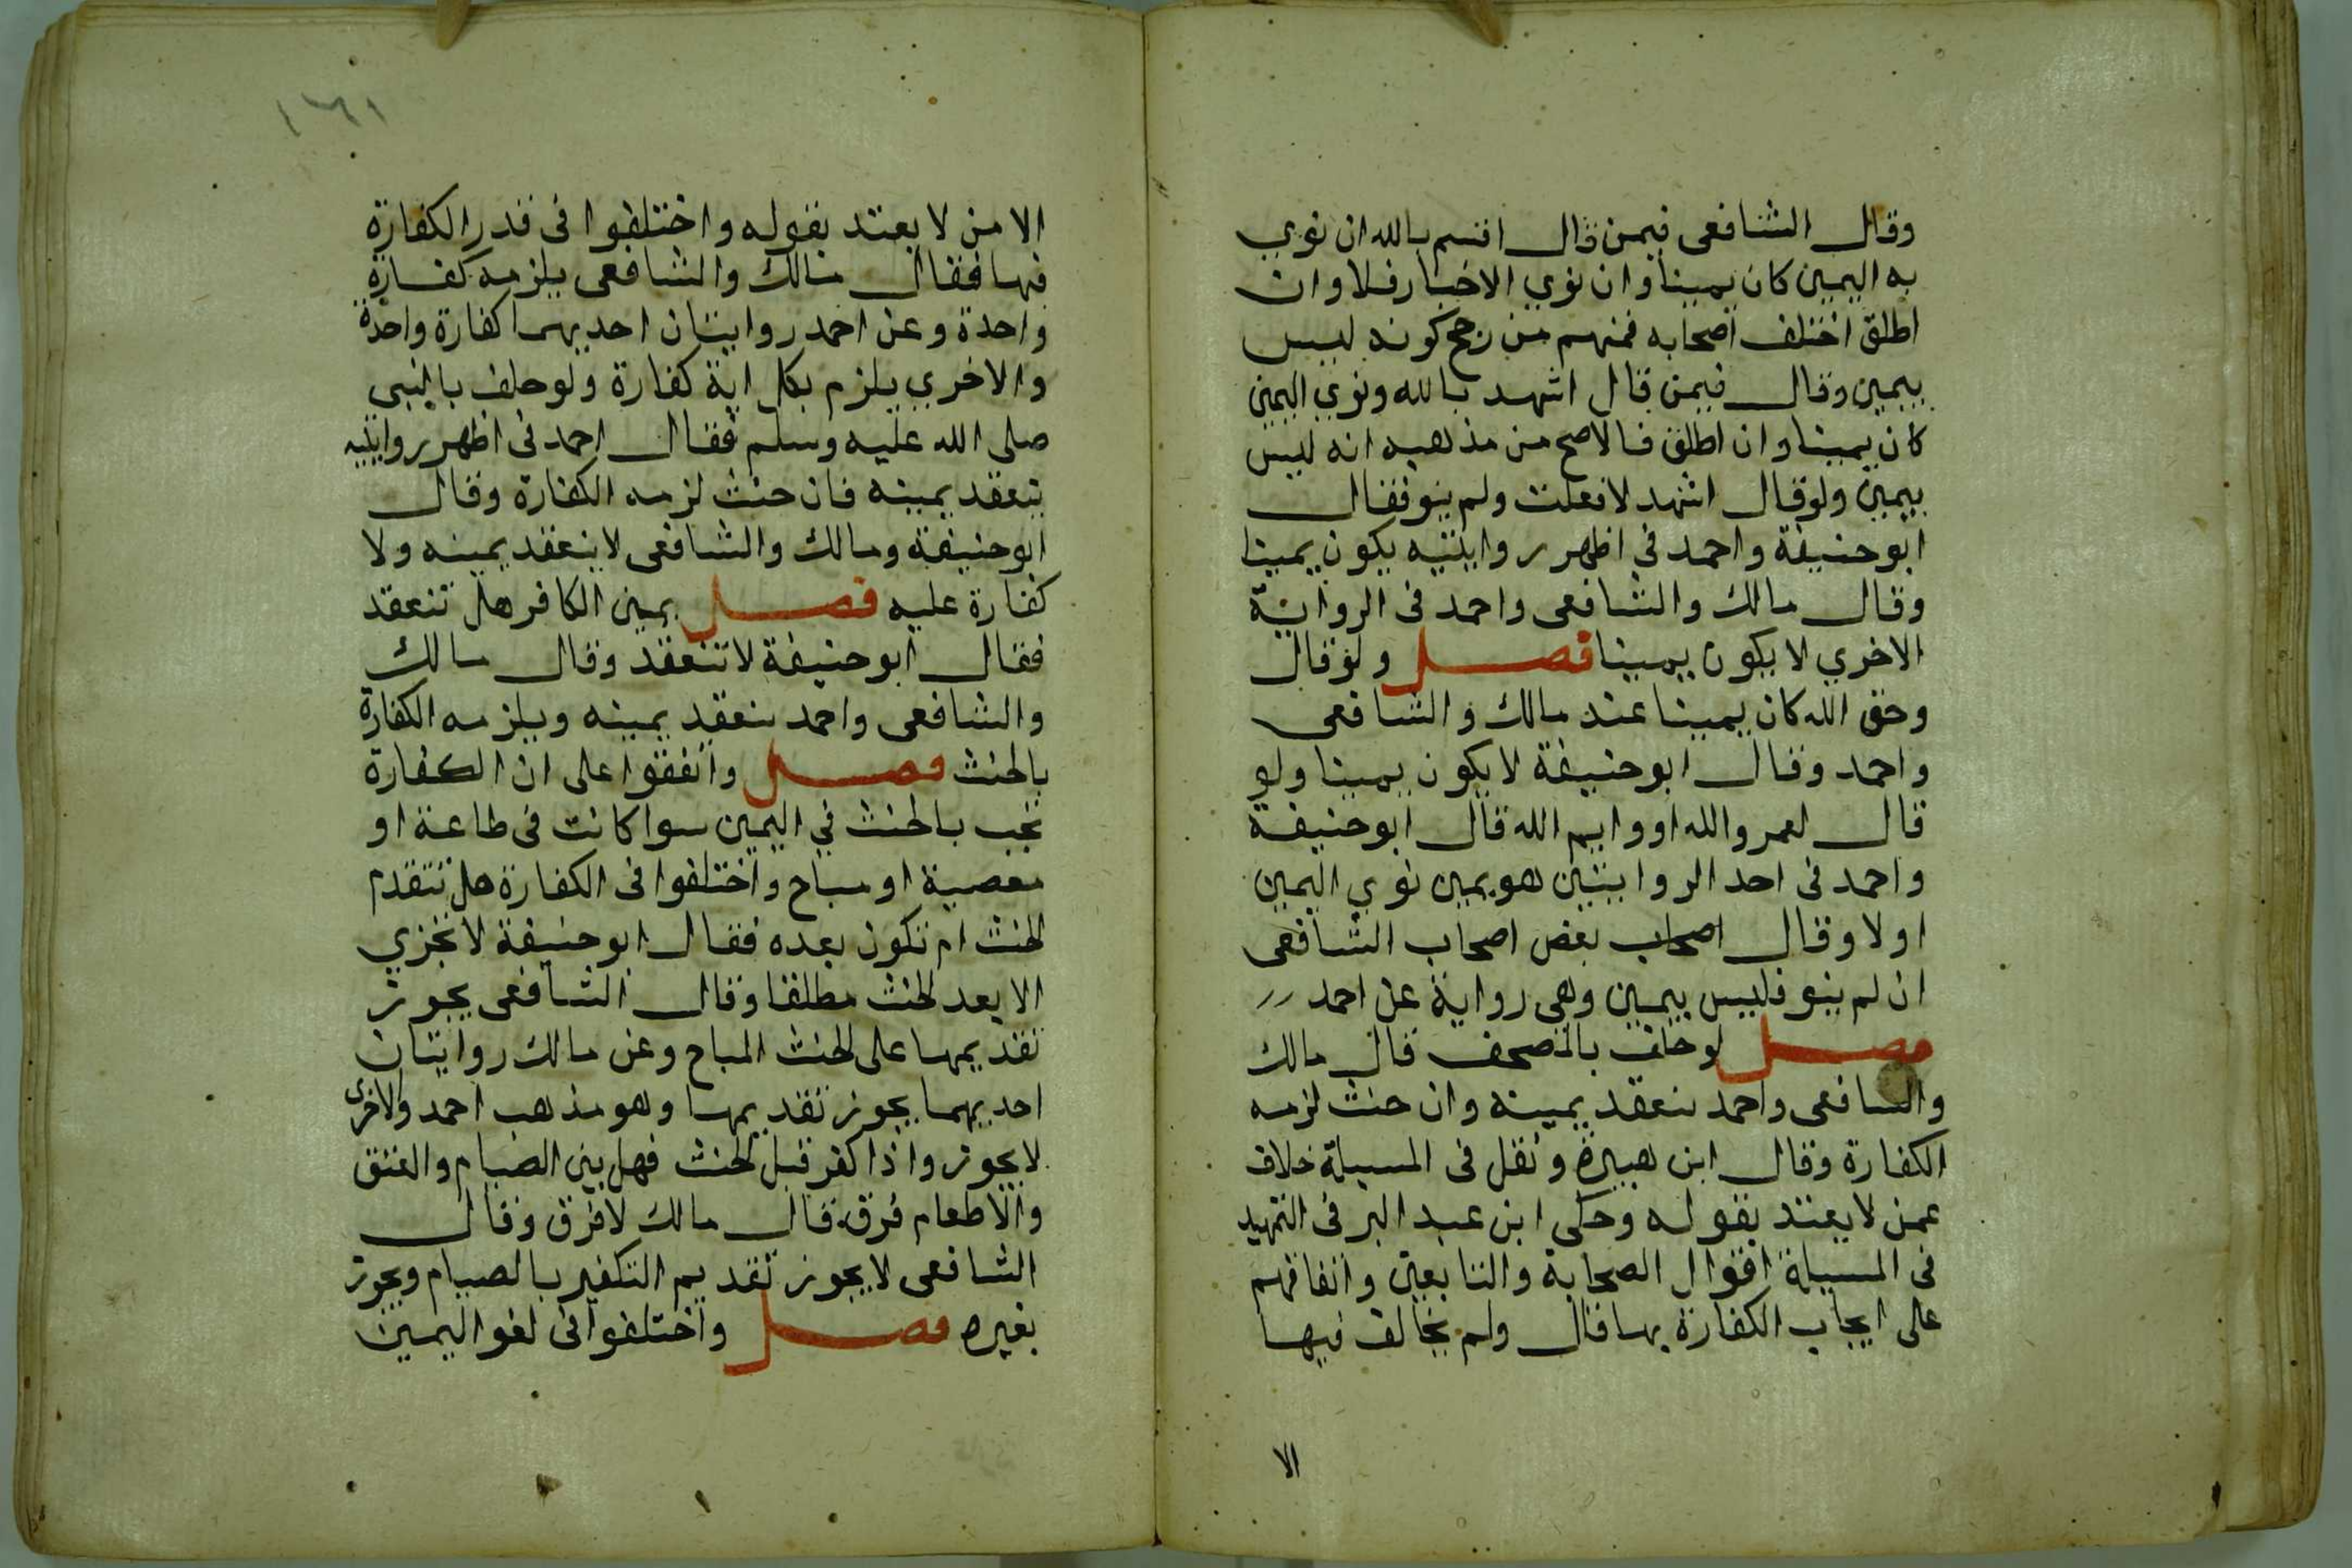 وقال الشافعى فيمن قال اقسم بالله ان نوي
به اليمين كان يمينا وان نوي الاخبار فلا وان
اطلق اختلف اصحابه فمنهم من رجح كونه ليس
بيمين وقال فيمن قال اشهد بالله ونوي اليمين
كان يمينا وان اطلق فالاصح من مذهبه انه ليس
بيمين ولوقال اشهد لافعلت ولم ينو فقال
ابوحنيفة واحمد فى اظهر روايتيه يكون يمينا
وقال مالك والشافعى واحمد فى الرواية
الاخري لا يكون يمينا فصل ولوقال
وحق الله كان يمينا عند مالك والشافعى
واحمد وقال ابوحنيفة لا يكون يمينا ولو
قال لعمر والله او وايم الله قال ابوحنيفة
واحمد فى احد الروايتين هو يمين نوي اليمين
اولا وقال اصحاب بعض اصحاب الشافعى
ان لم ينو فليس بيمين وهى رواية عن احمد
فصل لوحلف بالمصحف قال مالك
والشافعى واحمد ينعقد يمينه وان حنث لزمه
الكفارة وقال ابن هبيرة ونقل فى المسيلة خلاف
عمن لا يعتد بقوله وحكى ابن عبد البر فى التمهيد
فى المسيلة اقوال الصحابة والتابعين واتفاقهم
على ايجاب الكفارة بها قال ولم يخالف فيها
الا
١٦١
الا من لا يعتد بقوله واختلفوا فى قدر الكفارة
فيها فقال مالك والشافعى يلزمه كفارة
واحدة وعن احمد روايتان احديهما كفارة واحدة
والاخري يلزم بكل اية كفارة ولوحلف بالنبى
صلى الله عليه وسلم فقال احمد فى اظهر روايتيه
تنعقد يمينه فان حنث لزمه الكفارة وقال
ابوحنيفة ومالك والشافعى لا ينعقد يمينه ولا
كفارة عليه فصل يمين الكافر هل تنعقد
فقال ابوحنيفة لا تنعقد وقال مالك
والشافعى واحمد ينعقد يمينه ويلزمه الكفارة
بالحنث فصل واتفقوا على ان الكفارة
تجب بالحنث في اليمين سوا كانت فى طاعة او
معصية او مباح واختلفوا فى الكفارة هل تتقدم
الحنث ام تكون بعده فقال ابوحنيفة لا تجزي
الا بعد الحنث مطلقا وقال الشافعى يجوز
تقديمها على الحنث المباح وعن مالك روايتان
احديهما يجوز تقديمها وهو مذهب احمد والاخرى
لا يجوز واذا كفر قبل الحنث فهل بين الصيام والعتق
والاطعام فرق قال مالك لا فرق وقال
الشافعى لا يجوز تقديم التكفير بالصيام ويجوز
بغيره فصل واختلفوا فى لغو اليمين